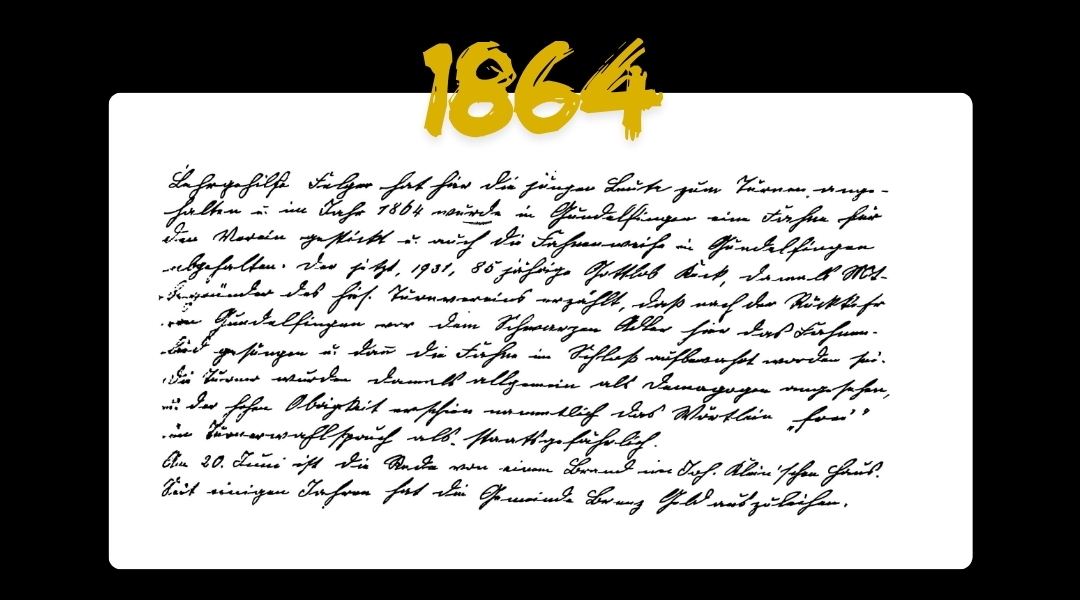 1864
Lehrgehilfe Felger hat hier die jungen Leute zum Turnen ange-
halten u. im Jahr 1864 wurde in Gundelfingen eine Fahne für
den Verein gestickt u. auch die Fahnenweihe in Gundelfingen
abgehalten. Der jetzt, 1931, 85 jährige Gottlob Keck, damals Mit-
begründer des hies. Turnvereins erzählt, daß nach der Rückkehr
von Gundelfingen vor dem Schwarzen Adler hier das Fahnen-
lied gesungen u. dann die Fahne im Schloß aufbewahrt worden sei.
Die Turner wurden damals allgemein als Demagogen angesehen,
u. der hohen Obrigkeit erschien namentlich das Wörtlein „frei"
im Turnerwahlspruch als staatsgefährlich.
Am 20. Juni ist die Rede von einem Brand im Joh. Klein'schen Haus.
Seit einigen Jahren hat die Gemeinde Brenz Geld auszuleihen.